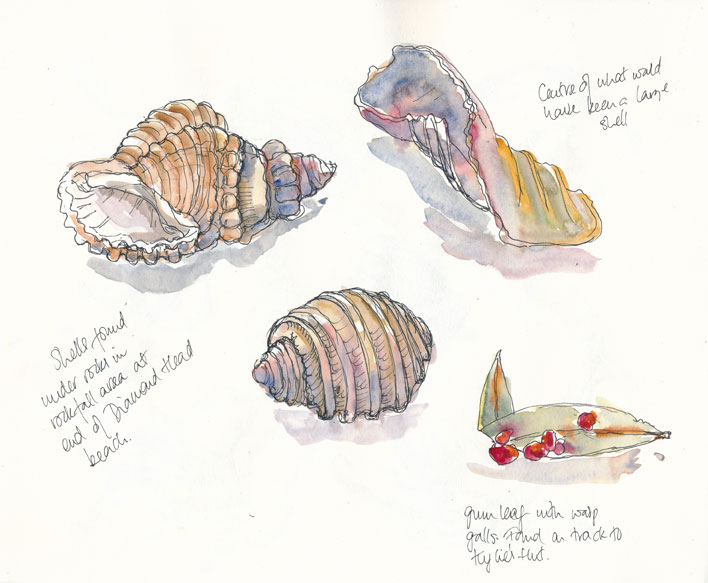 Centre of what would
have been a large
shell
Shells found
under rocks in
rockfall area at
end of Diamond Head
beach.
gum leaf with wasp
galls. Found on track to
Kylie's Hut.